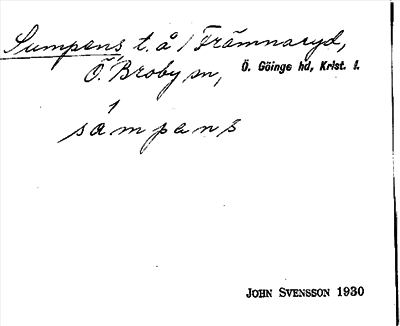 Sumpens t. å / Främnaryd,
Ö. Broby sn, Ö. Göinge hd, Krist. l.
sámpens
JOHN SVENSSON 1930